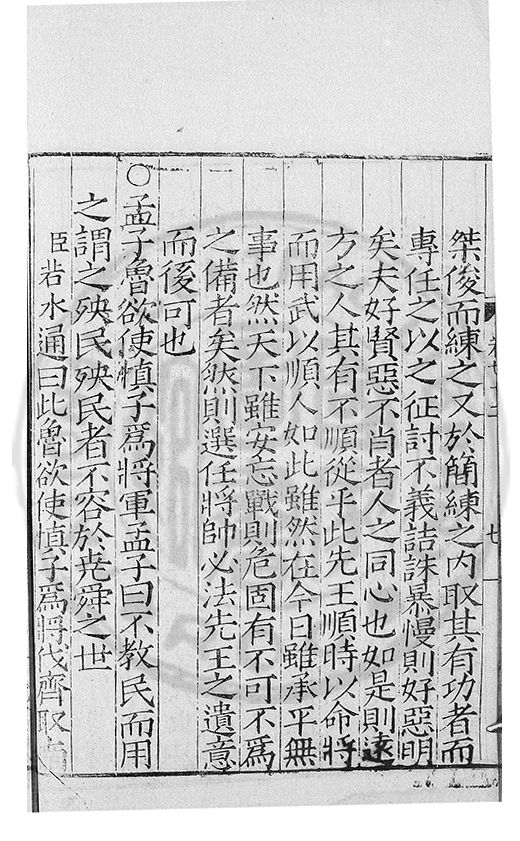 桀俊而練之又於簡練之内取其有功者而
專任之以之征討不義詰誅暴慢則好惡明
矣夫好賢惡不肖者人之同心也如是則遠
方之人其有不順從乎此先王順時以命將
而用武以順人如此雖然在今日雖承平無
事也然天下雖安忘戰則危固有不可不爲
之備者矣然則選任將帥必法先王之遺意
而後可也
○孟子魯欲使慎子爲將軍孟子曰不教民而用
之謂之殃民殃民者不容於尭舜之世
臣若水通曰此魯欲使慎子爲將伐齊取南